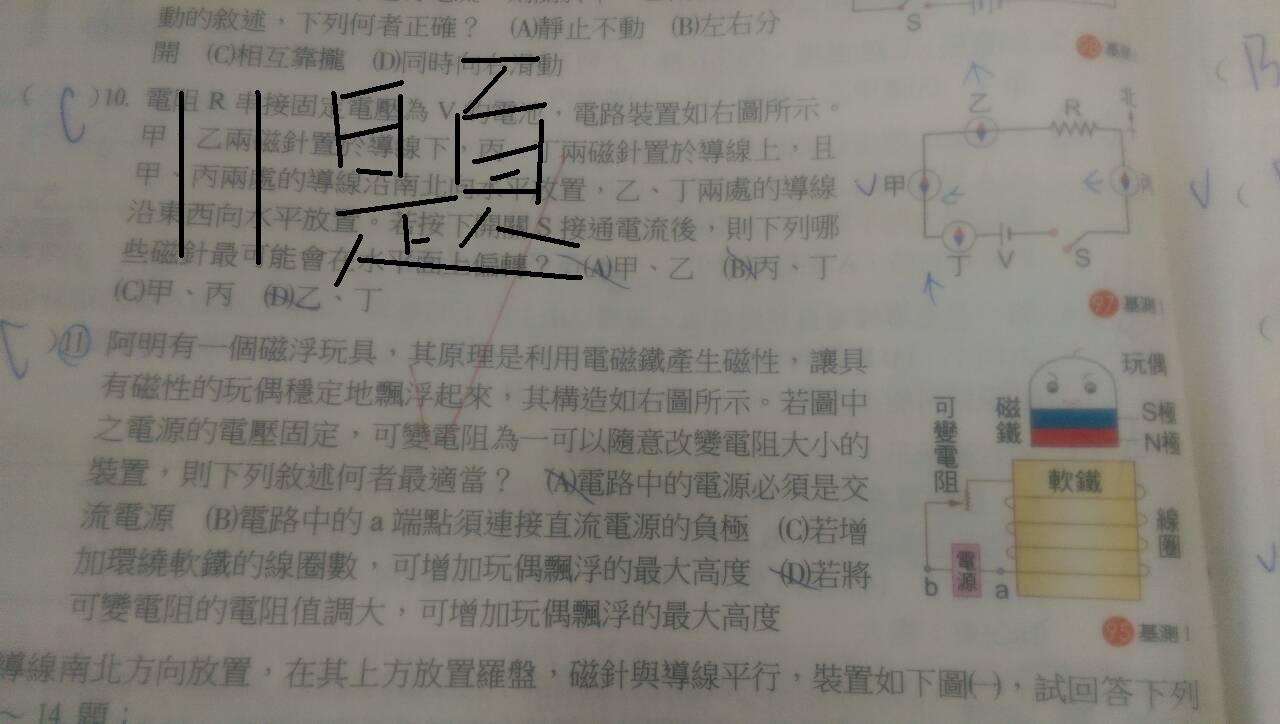 動的敘述，下列何者正確？ (A)靜止不動 (B)左右分
開 (C)相互靠攏 (D)同時向右滑動
S
98 基測
( C )10. 電阻 R 串接固定電壓為 V 的電池，電路裝置如右圖所示。
甲、乙兩磁針置於導線下，丙、丁兩磁針置於導線上，且
甲、丙兩處的導線沿南北向水平放置，乙、丁兩處的導線
沿東西向水平放置。若按下開關 S 接通電流後，則下列哪
些磁針最可能會在水平面上偏轉？ (A)甲、乙 (B)丙、丁
(C)甲、丙 (D)乙、丁
11 題
乙
R
北
甲
丙
丁
V
S
97 基測 1
)11 阿明有一個磁浮玩具，其原理是利用電磁鐵產生磁性，讓具
有磁性的玩偶穩定地飄浮起來，其構造如右圖所示。若圖中
之電源的電壓固定，可變電阻為一可以隨意改變電阻大小的
裝置，則下列敘述何者最適當？ (A)電路中的電源必須是交
流電源 (B)電路中的 a 端點須連接直流電源的負極 (C)若增
加環繞軟鐵的線圈數，可增加玩偶飄浮的最大高度 (D)若將
可變電阻的電阻值調大，可增加玩偶飄浮的最大高度
玩偶
S極
N極
磁鐵
可變電阻
軟鐵
線圈
電源
b
a
95 基測 1
導線南北方向放置，在其上方放置羅盤，磁針與導線平行，裝置如下圖(一)，試回答下列
～ 14 題：